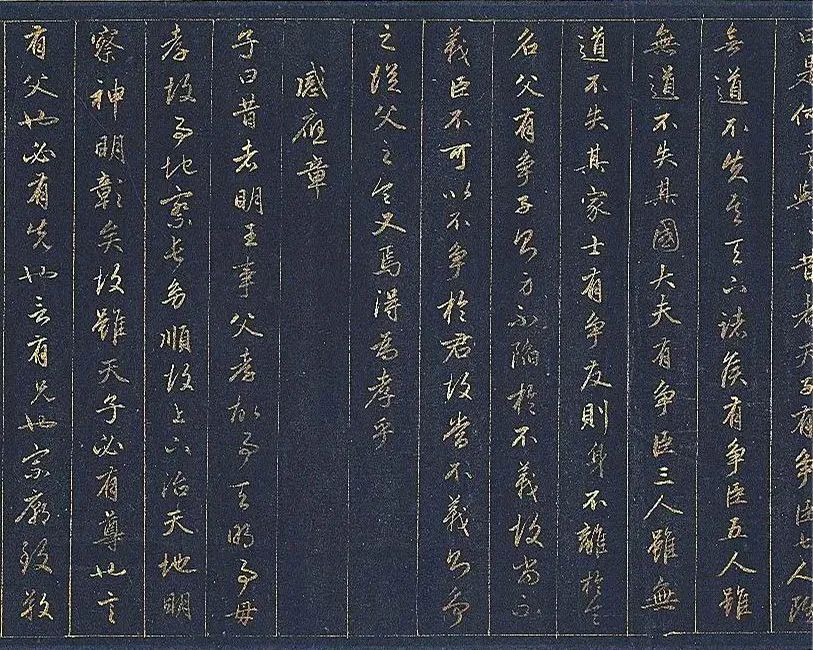 曰是何言與〻昔者天子有争臣七人雖
無道不失其天下諸侯有争臣五人雖
無道不失其國大夫有争臣三人雖無
道不失其家士有争友則身不離於令
名父有争子則身不陷於不義故當不
義臣不可以不争於君故當不義則争
之從父之令又焉得為孝乎
感應章
子曰昔者明王事父孝故事天明事母
孝故事地察長幼順故上下治天地明
察神明彰矣故雖天子必有尊也言
有父也必有先也言有兄也宗廟致敬